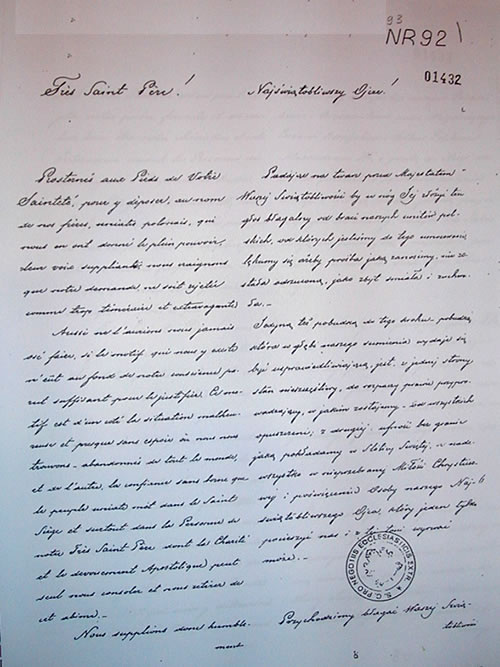 93
NR 92
01432
Très Saint Père!
Prosternés aux Pieds de Votre
Sainteté, pour y déposer, au nom
de nos frères, uniates polonais, qui
nous en ont donné le plein pouvoir,
leur voix suppliante, nous craignons
que notre demande ne soit rejetée
comme trop téméraire et extravagante.
Aussi ne l'aurions nous jamais
osé faire, si le motif qui nous y excite
n'eût au fond de notre conscience pa-
rut suffisant pour le justifier. Ce mo-
tif est d'un côté la situation malheu-
reuse et presque sans espoir où nous nous
trouvons - abandonnés de tout le monde,
et de l'autre, la confiance sans borne que
le peuple uniate met dans le Saint
Siège et surtout dans la Personne de
notre Très Saint Père dont la Charité
et le dévouement Apostolique peut
seul nous consoler et nous retirer de
cet abîme.-
Nous supplions donc humble-
ment
Najświątobliwszy Ojcze!
Padając na twarz przed Majestatem
Waszej Świątobliwości by u nóg Jej złożyć ten
głos błagalny od braci naszych unitów pol-
skich, od których jesteśmy do tego umocowani
lękamy się ażeby prośba jaką zanosimy, nie zo-
stała odrzuconą, jako zbyt śmiała i zuchwa-
ła.-
Jedyną też pobudką do tego kroku, pobudką
która w głębi naszego sumienia wydaje się
być usprawiedliwiającą, jest, z jednej strony
stan nieszczęśliwy, do rozpaczy prawie przypro-
wadzający, w jakim zostajemy - od wszystkich
opuszczeni; z drugiej - ufność bez granic
jaką pokładamy w Stolicy Świętej, a nade-
wszystko w nieprzebranej Miłości Chrystuso-
wej i poświęceniu Osoby naszego Naj-
świątobliwszego Ojca, który jeden tylko
pocieszyć nas i z tej toni wyrwać
może.-
Przychodzimy błagać Waszej Świą-
tobliwości
A.E.S. S.C. PRO NEGOTIIS ECCLESIASTICIS EXTR.
8